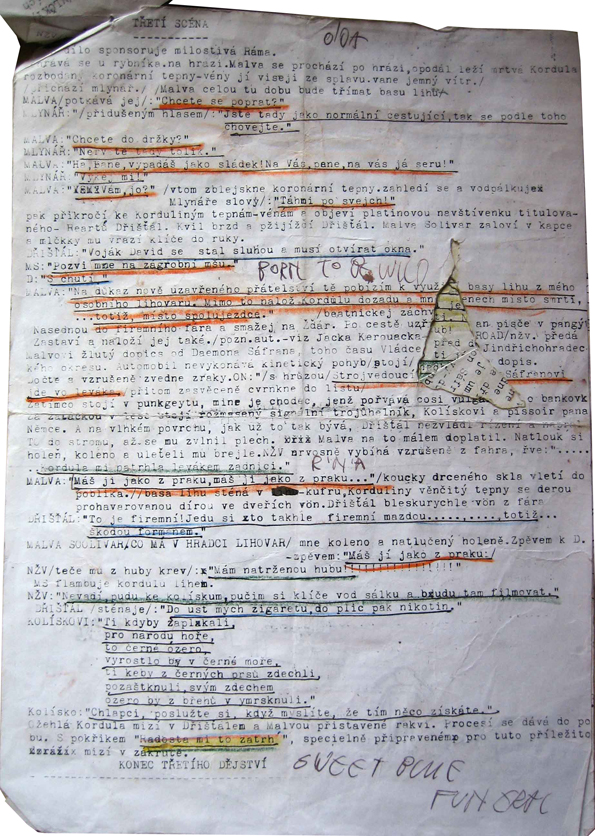 TŘETÍ SCÉNA
O/OA
dílo sponsoruje milostivá Ráma.
se u rybníka.na hrázi.Malva se prochází po hrázi,opodál leží mrtvá Kordula
rozbodány koronární tepny-vény jí visejí ze splavu.vane jemný vítr./
přichází mlynář./ /Malva celou tu dobu bude třímat basu lihu
MALVA/potkává jej/:"Chcete se poprat?"
MLYNÁŘ:"/přidušeným hlasem/:"Jste tady jako normální cestující,tak se podle toho
chovejte."
MALVA:"Chcete do držky?"
MLYNÁŘ:"Nerv te tady tolik."
MALVA:"Ha,pane,vypadáš jako sládek!Na Vás,pane,na vás já seru!"
MLYNÁŘ:"Vykej mi!"
MALVA: jo?" /vtom zblejskne koronární tepny.zahledí se a vodpálkuje
Mlynáře slovy/:"Táhni po svejch!"
pak přikročí ke Korduliným tepnám-vénám a objeví platinovou navštívenku titulova-
ného Hearta Dřišťál. Kvil brzd a přijíždí Dřišťál. Malva Solivar zaloví v kapce
a mlčky mu vrazí klíče do ruky.
DŘIŠŤÁL:"Voják David se stal sluhou a musí otvírat okna."
MS:"Pozvi mne na zágrobní mšu."
BORN TO BE WILD
D:"S chutí "
MALVA:"Na důkaz nově uzavřeného přátelství tě pobízím k využ basy lihu z mého
osobního lihovaru. Mimo to nalož Kordulu dozadu a mne enech místo smrti,
...totiž, místo spolujezdce." /beatnickej záchv je
Nasednou do firemního fára a smažej na Žďár. Po cestě uz an pisče v pangýt
Zastaví a naloží jej také./pozn.aut.-viz Jacka Kerouacka ROAD/nžv. předá
Malvovi žlutý donica od Daemona Šáfrana, toho času Vládce Jindřichohradec-
kého okresu. Automobil nevykonává kinetický pohyb/stojí dopis.
Dočte a vzrušeně zvedne zraky.ON:"/s hrůzou/Strojvedouc Šafránovi
jde vo levák" přitom zasvěceně cvrnkne do listu/
Zatímco stojí v pankejtu, mine je chodec, jenž pořvává cosi vulg o bankovk
za zatáčkou v lese stojí rozmazený signální trojúhelník, Kolískovi a pissoir pana
Němce. A na vlhkém povrchu, jak už to tak bývá, Dřišťál nezvládl řízení a napálí
TO do stromu, až.se mu zvlnil plech. Malva na to málem doplatil. Natlouk si
holeň, koleno a uletěli mu brejle.NŽV nervosně vybíhá vzrušeně z fáhra, řve:".....
Kordula mi natrhla levákem zadnici."
RNA
MALVA:"Máš jí jako z praku,máš jí jako z praku..."/koucky drceného skla vletí do
poblika.//basa lihu sténá v kufru,Korduliny věnčitý tepny se derou
prohavarovanou dírou ve dveřích vön.Dřišťál bleskurychle vön z fára
DŘIŠŤÁL:"To je firemní!Jedu si xto takhle firemní mazdou.....,...totiž...
škodou formanem."
MALVA SOOLIVAR/CO MÁ V HRADCI LIHOVAR/ mne koleno a natlučený holeně.Zpěvem k D.
-zpěvem:"Máš jí jako z praku:/
NŽV/teče mu z huby krev/:x"Mám natrženou hubu!!!!!!!!!!!!!!"
MS flambuje kordulu lihem.
NŽV:"Nevadí,pudu ke kolískum,pučim si klíče vod sálku a budu tam filmovat."
DŘIŠŤÁL /sténaje/:"Do ust mých zigaretu,do plic pak nikotin."
KOLÍSKOVI:"Ti kdyby zapískali,
pro národu hoře,
to černé ozero,
vyrostlo by v černé moře,
ti keby z černých prsů zdechli,
pozaštknuli,svým zdechem
ozero by z břehů v ymrsknuli."
Kolísko:"Chlapci, poslužte si, když myslíte, že tím něco získáte.",
Ožehlá Kordula mizí v Dřišťálem a Malvou přistavené rakvi. Procesí se dává do po
bu. S pokřikem "Radosta mi to zatrh ", specielně připraveném pro tuto příležito
mizí v zákrutě.
KONEC TŘETÍHO DĚJSTVÍ
SWEET BLUE
FUNERAL